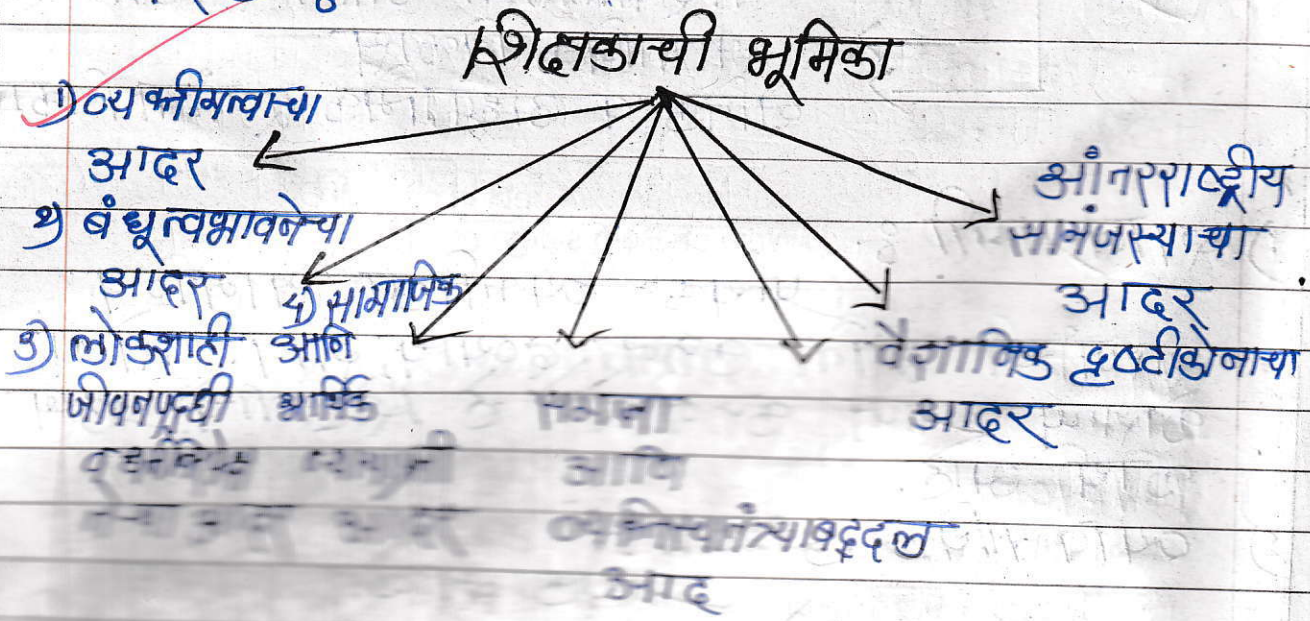 शिक्षकाची भूमिका
१) व्यक्तीमत्वाचा
आदर
२) बंधूत्वभावनेचा
आदर
३) लोकशाही
जीवनपध्दी
४) सामाजिक
आनि
आर्थिक
आदर
समता
आणि
व्यक्तिस्वातंत्र्याबद्दल
आद
वैज्ञानिक दृष्टीकोनाचा
आदर
आंतरराष्ट्रीय
सामंजस्याचा
आदर